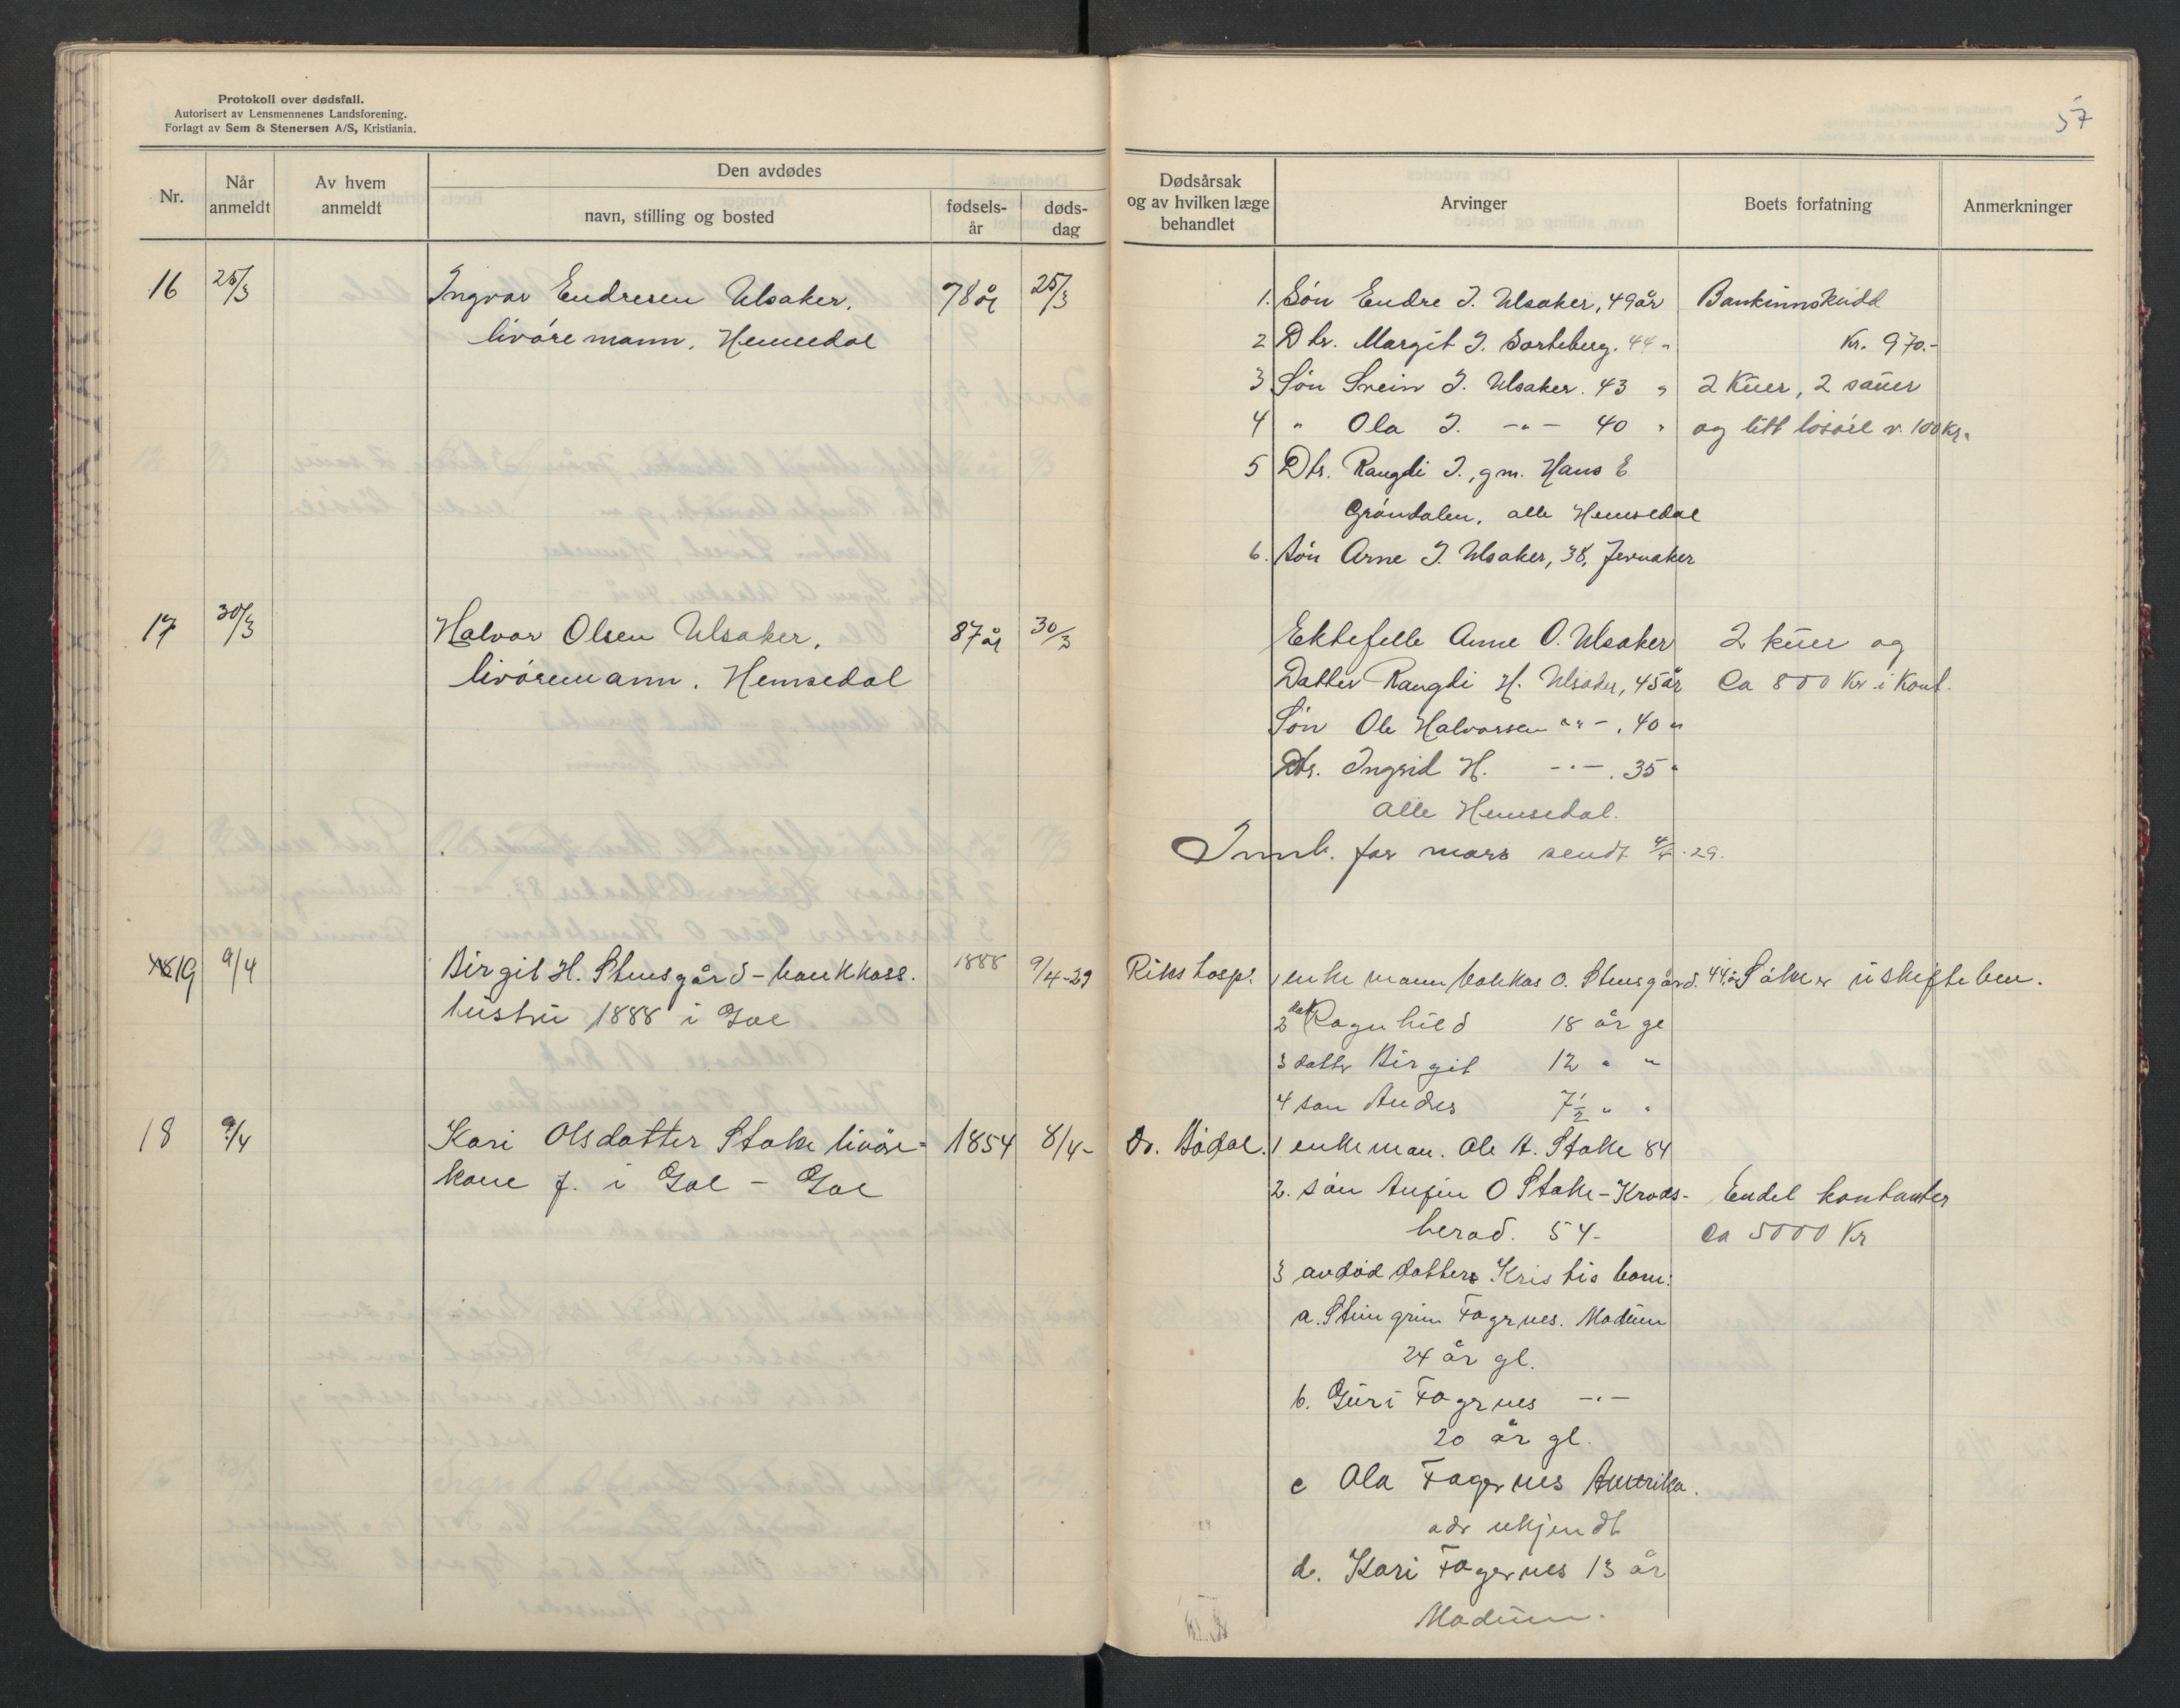 Protokoll over dødsfall.
Autorisert av Lensmennenes Landsforening.
Forlagt av Sem & Stenersen A/S, Kristiania.
57
Nr.
Når anmeldt
Av hvem anmeldt
Den avdødes
navn, stilling og bosted
fødsels-år
døds-dag
Dødsårsak og av hvilken læge behandlet
Arvinger
Boets forfatning
Anmerkninger
16 25/3 Ingvar Endresen Ulsaker, 78 år 25/3 1. Søn Endre I. Ulsaker, 49 år Bankinnskudd
livøremann, Hemsedal 2 Dtr. Margit I. Sorteberg. 44 " Kr. 970.-
3 Søn Svein I. Ulsaker. 43 " 2 kuer, 2 sauer
4 " Ola I. -"- 40 " og litt løsøre v. 100 kr.
5 Dtr. Rangdi I., gm. Hans E
Grøndalen, alle Hemsedal
6. Søn Arne I. Ulsaker, 38, Jevnaker
17 30/3 Halvor Olsen Ulsaker, 87 år 30/3 Ektefelle Anne O. Ulsaker 2 kuer og
livøremann. Hemsedal Datter Rangdi H. Ulsaker, 45 år Ca 800 Kr i kont.
Søn Ole Halvorsen -"-, 40 "
Dtr. Ingrid H. -"-. 35 "
Alle Hemsedal.
Innb. for mars sendt 4/4-29.
19 9/4 Birgit H. Stensgård - bankkass. 1888 9/4-29 Rikshosp. 1 enkemann bankkas O. Stensgård. 44 år Søker uskifte bev.
hustru 1888 i Gol 2 dat Ragnhild 18 år gl
3 datter Birgit 12 " "
4 søn Andres 7½ " "
18 9/4 Kari Olsdatter Stake livøre- 1854 8/4- Dr. Bødal. 1 enkeman. Ole A. Stake 84
kone f. i Gol - Gol 2. søn Anfin O Stake - Krøds- Endel kontanter
herad. 54- Ca 5000 Kr
3 avdød datters Kristis barn:
a. Steingrim Fagrnes. Modum
24 år gl.
b. Guri Fagrnes -"-
20 år gl.
c Ola Fagernes Amerika.
adr ukjendt
d. Kari Fagernes 13 år
Modum.